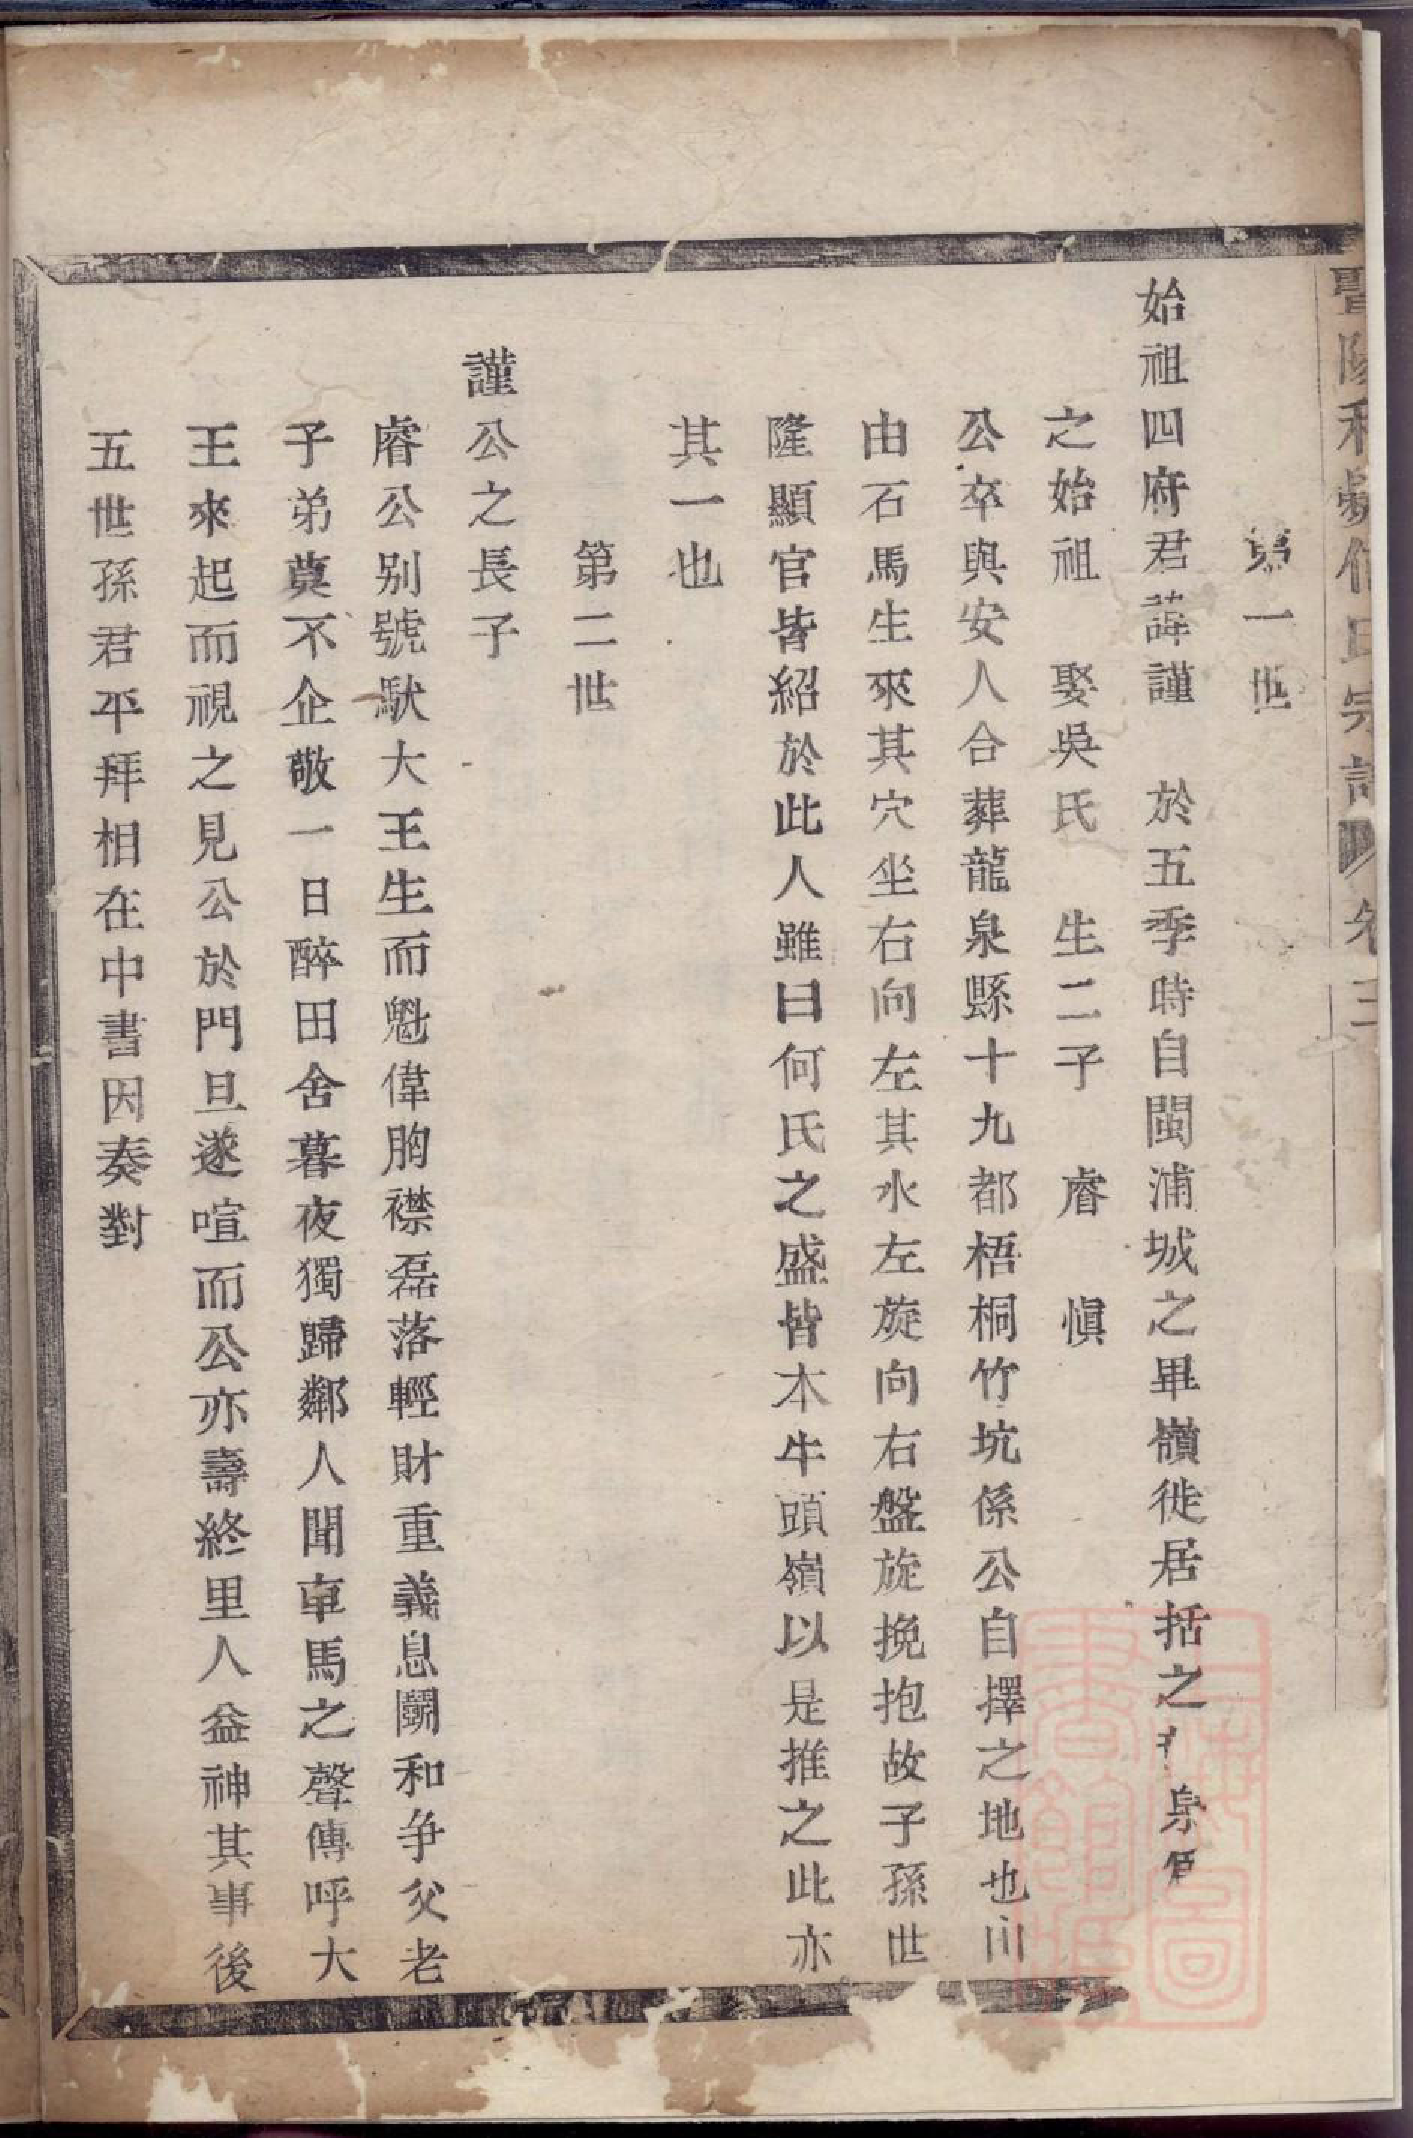 暨陽和
氏宗譜
卷三
第一世
始祖四府君諱謹　於五季時自閩浦城之畢嶺徙居括之泉
之始祖　娶吳氏　生二子　睿　愼
公卒與安人合葬龍泉縣十九都梧桐竹坑係公自擇之地也
由石馬生來其穴坐右向左其水左旋向右盤旋挽抱故子孫世
隆顯官皆紹於此人雖曰何氏之盛皆木牛頭嶺以是推之此亦
其一也
第二世
謹公之長子
睿公别號𫘝大王生而魁偉胸襟磊落輕財重義息鬬和争父老
子弟莫不企敬一日醉田舍暮夜獨歸鄰人聞車馬之聲傳呼大
王來起而視之見公於門旦遂喧而公亦壽終里人益神其事後
五世孫君平拜相在中書因奏對
上海圖書館藏